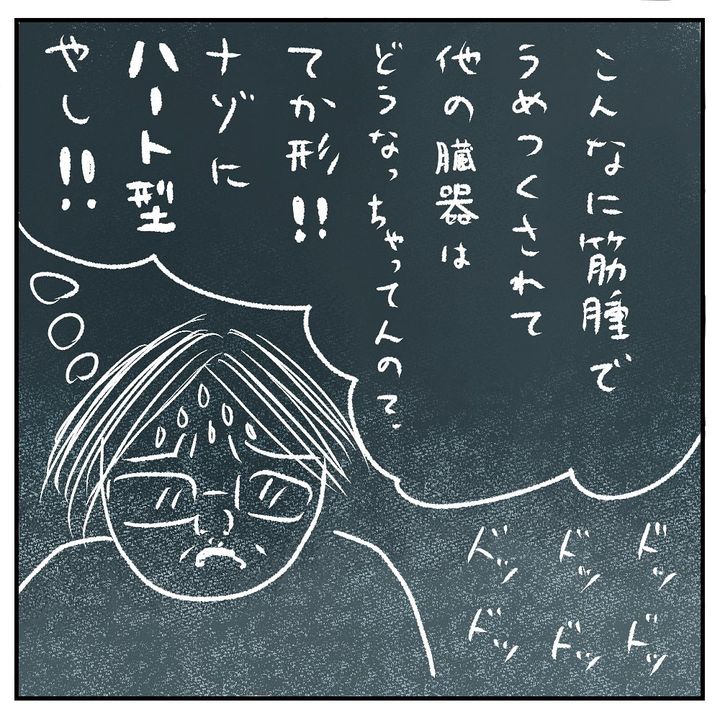 こんなに筋腫で
うめつくされて
他の臓器は
どうなっちゃってんので、
てか形!!
ナゾに
ハート型
やし!!
ドッ ドッ ドッ
ドッ ドッ ドッ